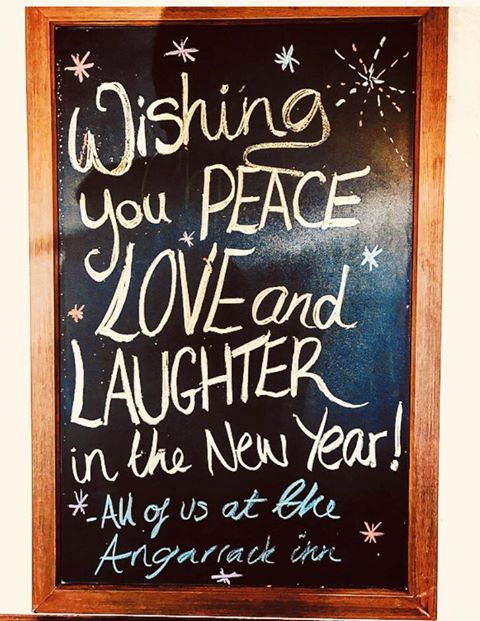 Wishing
you PEACE
LOVE and
LAUGHTER
in the New Year!
-All of us at the
Angarrack inn